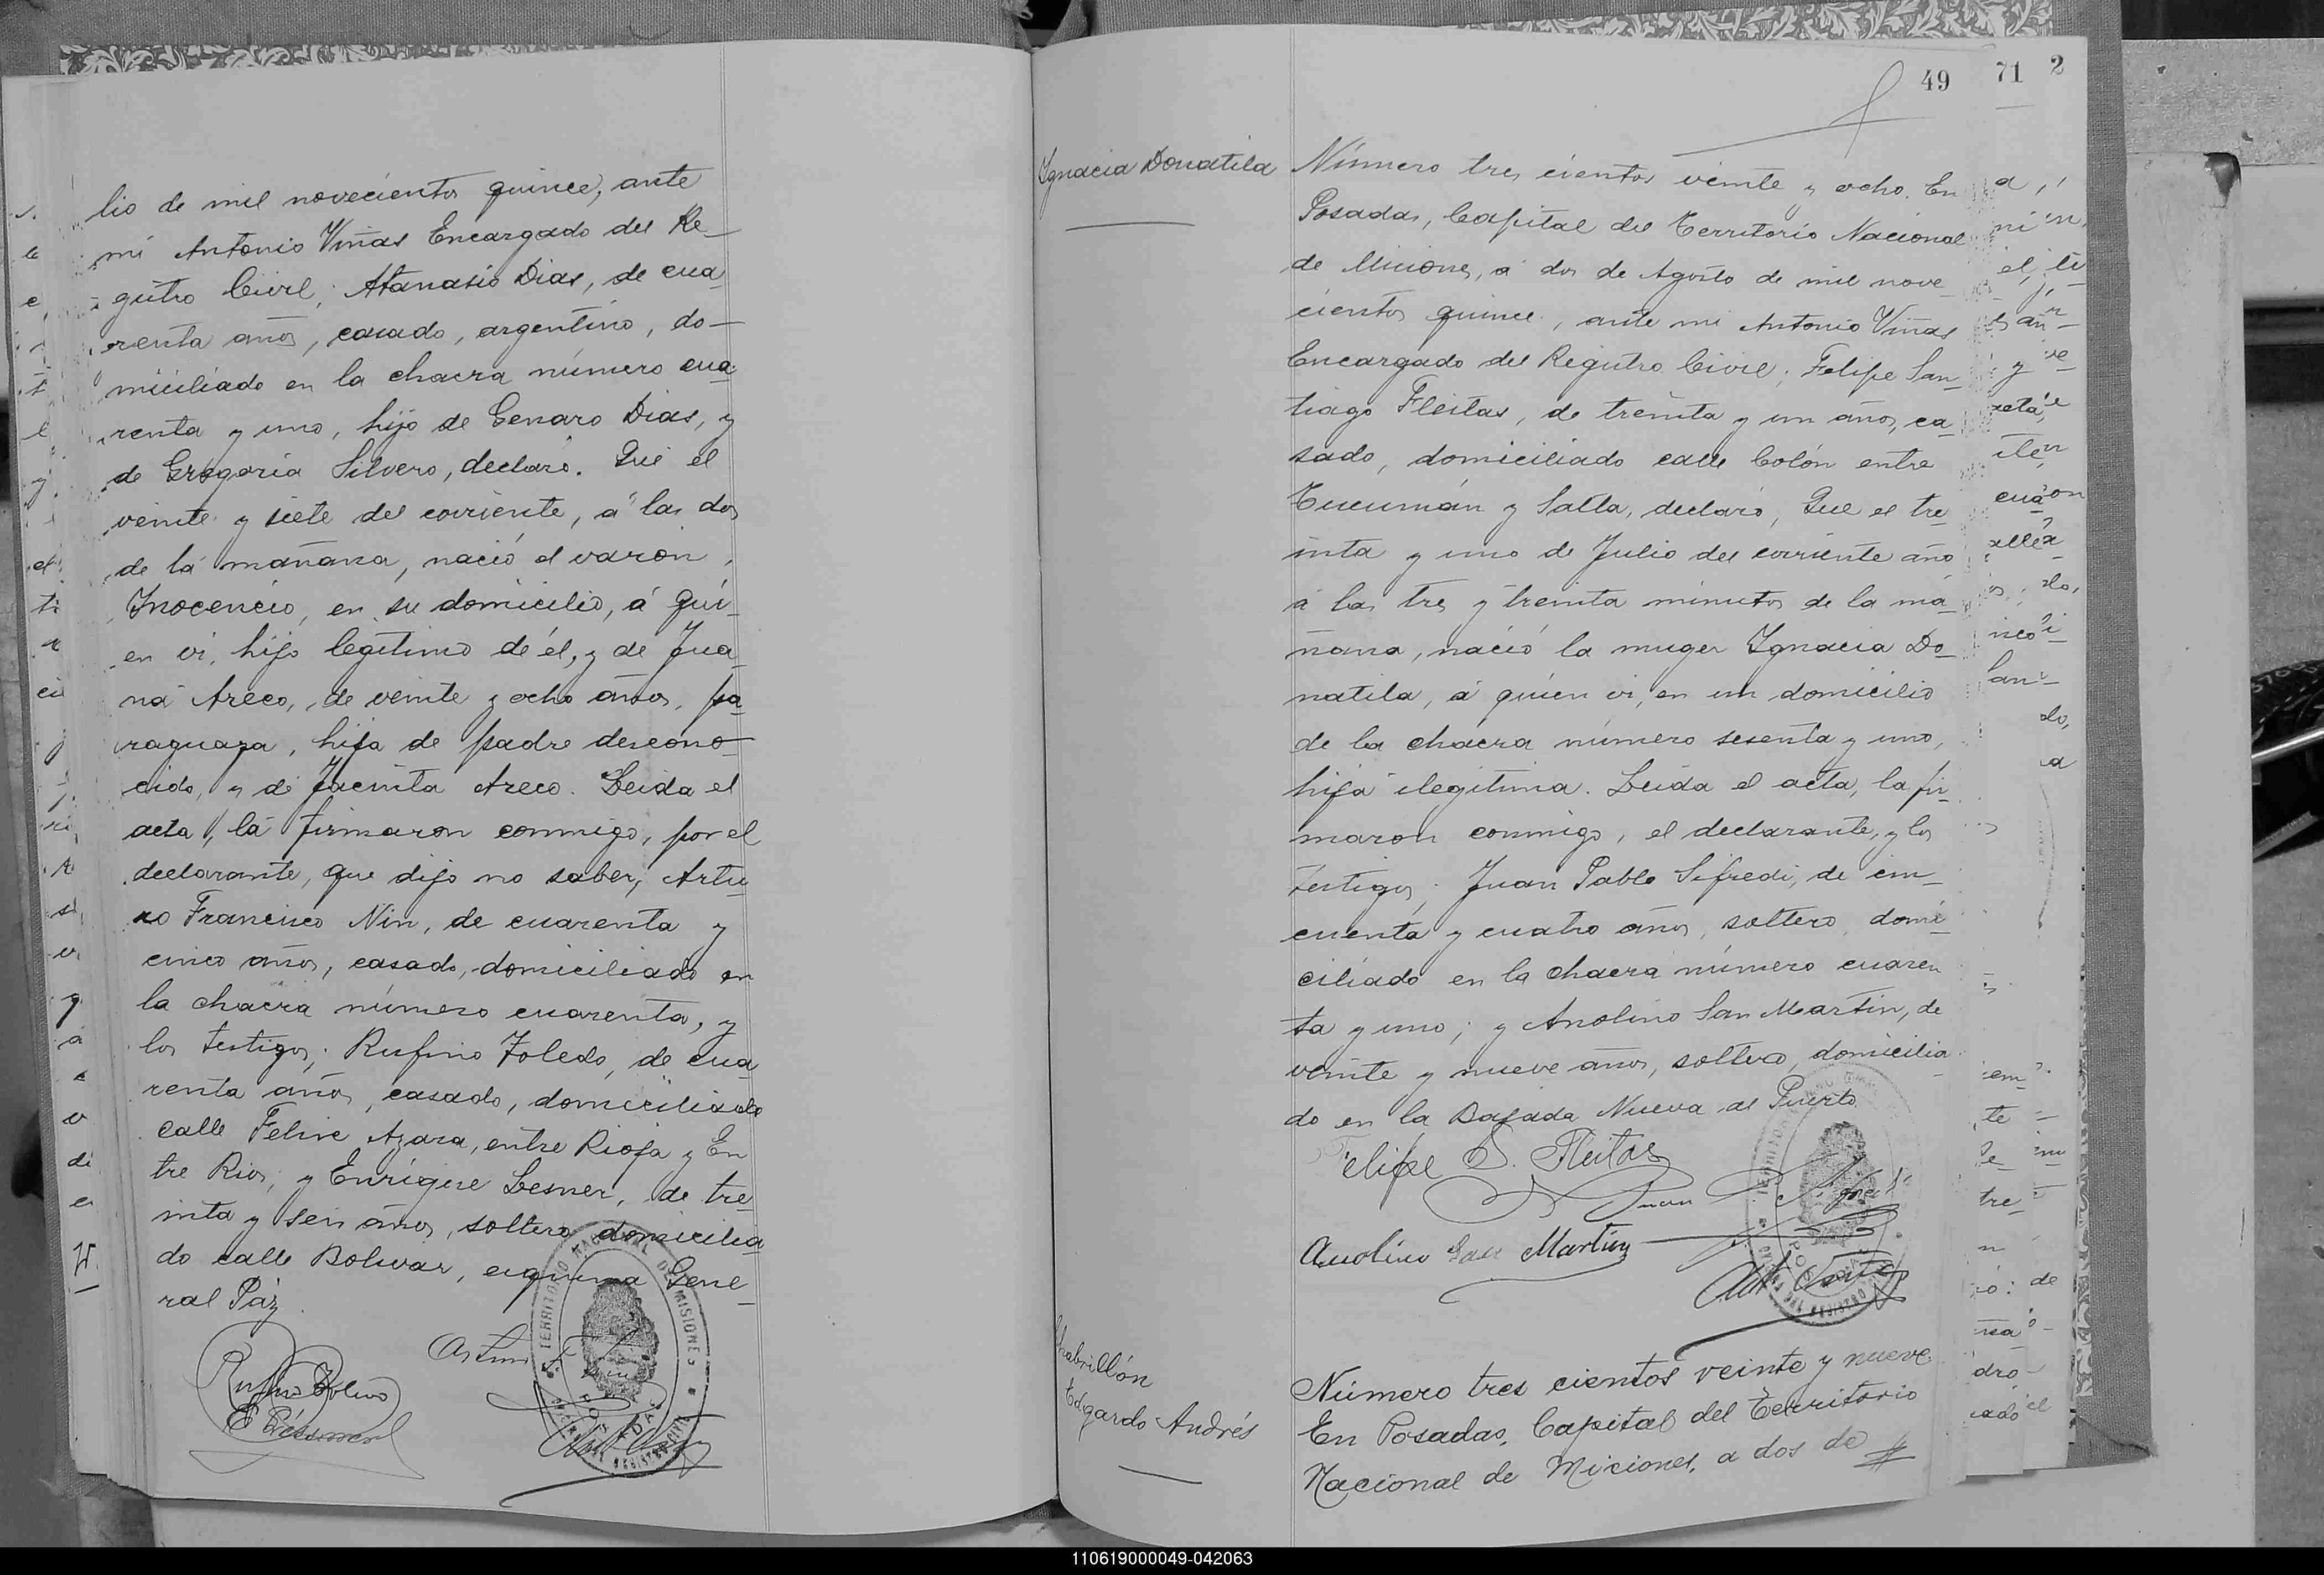 lio de mil novecientos quince, ante
mi Antonio Viñas Encargado del Re-
gistro Civil; Atanasio Dias, de cua
renta años, casado, argentino, do-
miciliado en la chacra número cua-
renta y uno, hijo de Genaro Dias, y
de Gregoria Silvero, declaró. Que el
veinte y siete del corriente, á las dos
de la mañana, nació el varon,
Inocencio, en su domicilio, á qui-
en vi, hijo legítimo de él, y de Jua-
na Areco, de veinte y ocho años, pa-
raguaya, hija de padre descono-
cido, y de Jacinta Areco. Leida el
acta, la firmaron conmigo, por el
declarante, que dijo no saber, Artu
ro Francisco Nin, de cuarenta y
cinco años, casado, domiciliado en
la chacra número cuarenta, y
los testigos; Rufino Toledo, de cua
renta años, casado, domiciliado
calle Felix Azara, entre Rioja y En
tre Rios, y Enrique Lesner, de tre
inta y seis años, soltero domicilia
do calle Bolivar, esquina Gene-
ral Páz.
Artur F. Nin
Rufino Toledo
TERRITORIO NACIONAL DE MISIONES
POSADAS
49 71 2
Ignacia Donatila
Número tres cientos veinte y ocho. En
Posadas, Capital del Territorio Nacional
de Miciones, á dos de Agosto de mil nove-
cientos quince, ante mi Antonio Viñas
Encargado del Registro Civil; Felipe San-
tiago Fleitas, de treinta y un años, ca-
sado, domiciliado calle Colón entre
Tucumán y Salta, declaró, Que el tre
inta y uno de Julio del corriente año
á las tres y treinta minutos de la ma-
ñana, nació la muger Ignacia Do-
natila, á quien vi, en un domicilio
de la chacra número sesenta y uno,
hija ilegítima. Leida el acta, la fir-
maron conmigo, el declarante, y los
testigos; Juan Pablo Sifredi, de cin-
cuenta y cuatro años, soltero, domi-
ciliado en la chacra número cuaren
ta y uno; y Anolino San Martin, de
veinte y nueve años, soltero, domicilia-
do en la Bajada Nueva al Puerto.
Felipe S. Fleitas
Juan P. Sifredi
Anolino San Martin
Chabrillón
Edgardo Andrés
Número tres cientos veinte y nueve
En Posadas, Capital del Territorio
Nacional de Miciones, a dos de
110619000049-042063